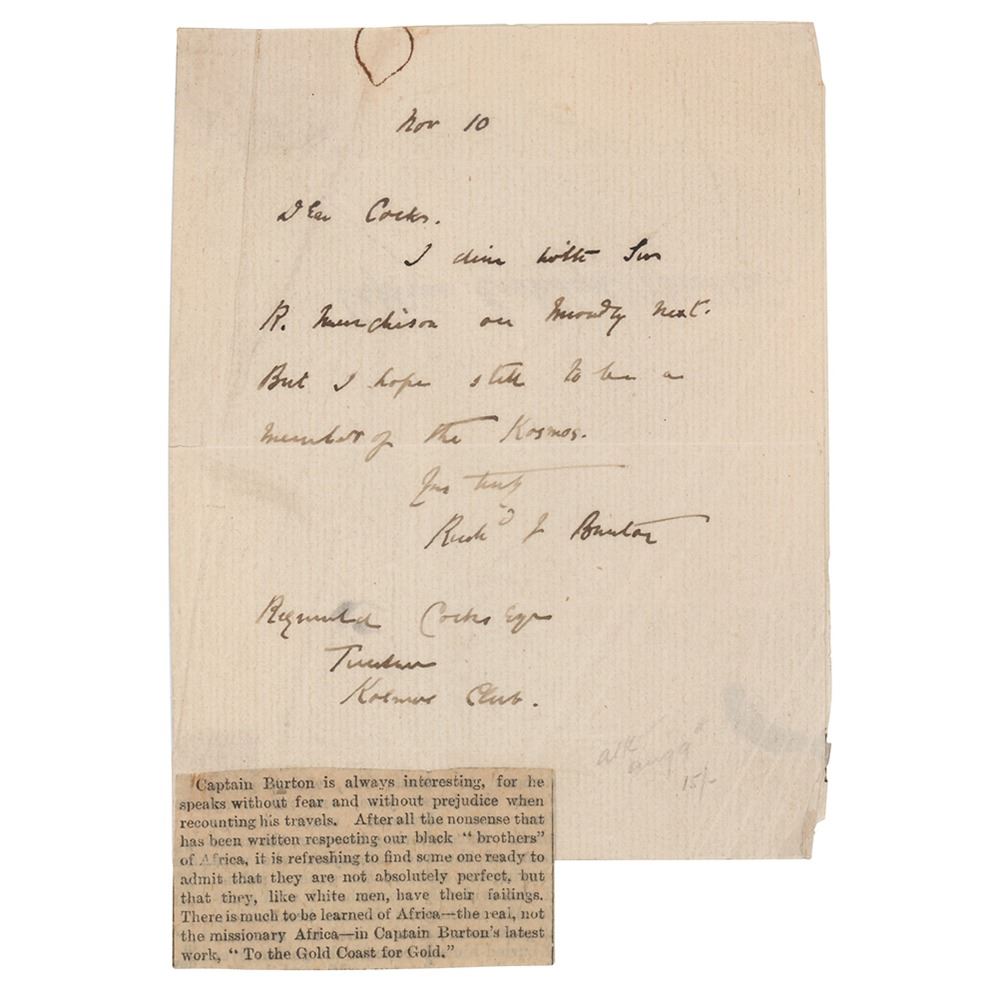 Nov 10
Dear Cocks.
I dine with Sir
R. Murchison on Monday next.
But I hope still to be a
member of the Kosmos.
Yrs truly
Richd F Burton
Reginald Cocks Esqr
Kosmos Club.
15/-
Captain Burton is always interesting, for he
speaks without fear and without prejudice when
recounting his travels. After all the nonsense that
has been written respecting our black "brothers"
of Africa, it is refreshing to find some one ready to
admit that they are not absolutely perfect, but
that they, like white men, have their failings.
There is much to be learned of Africa—the real, not
the missionary Africa—in Captain Burton's latest
work, "To the Gold Coast for Gold."